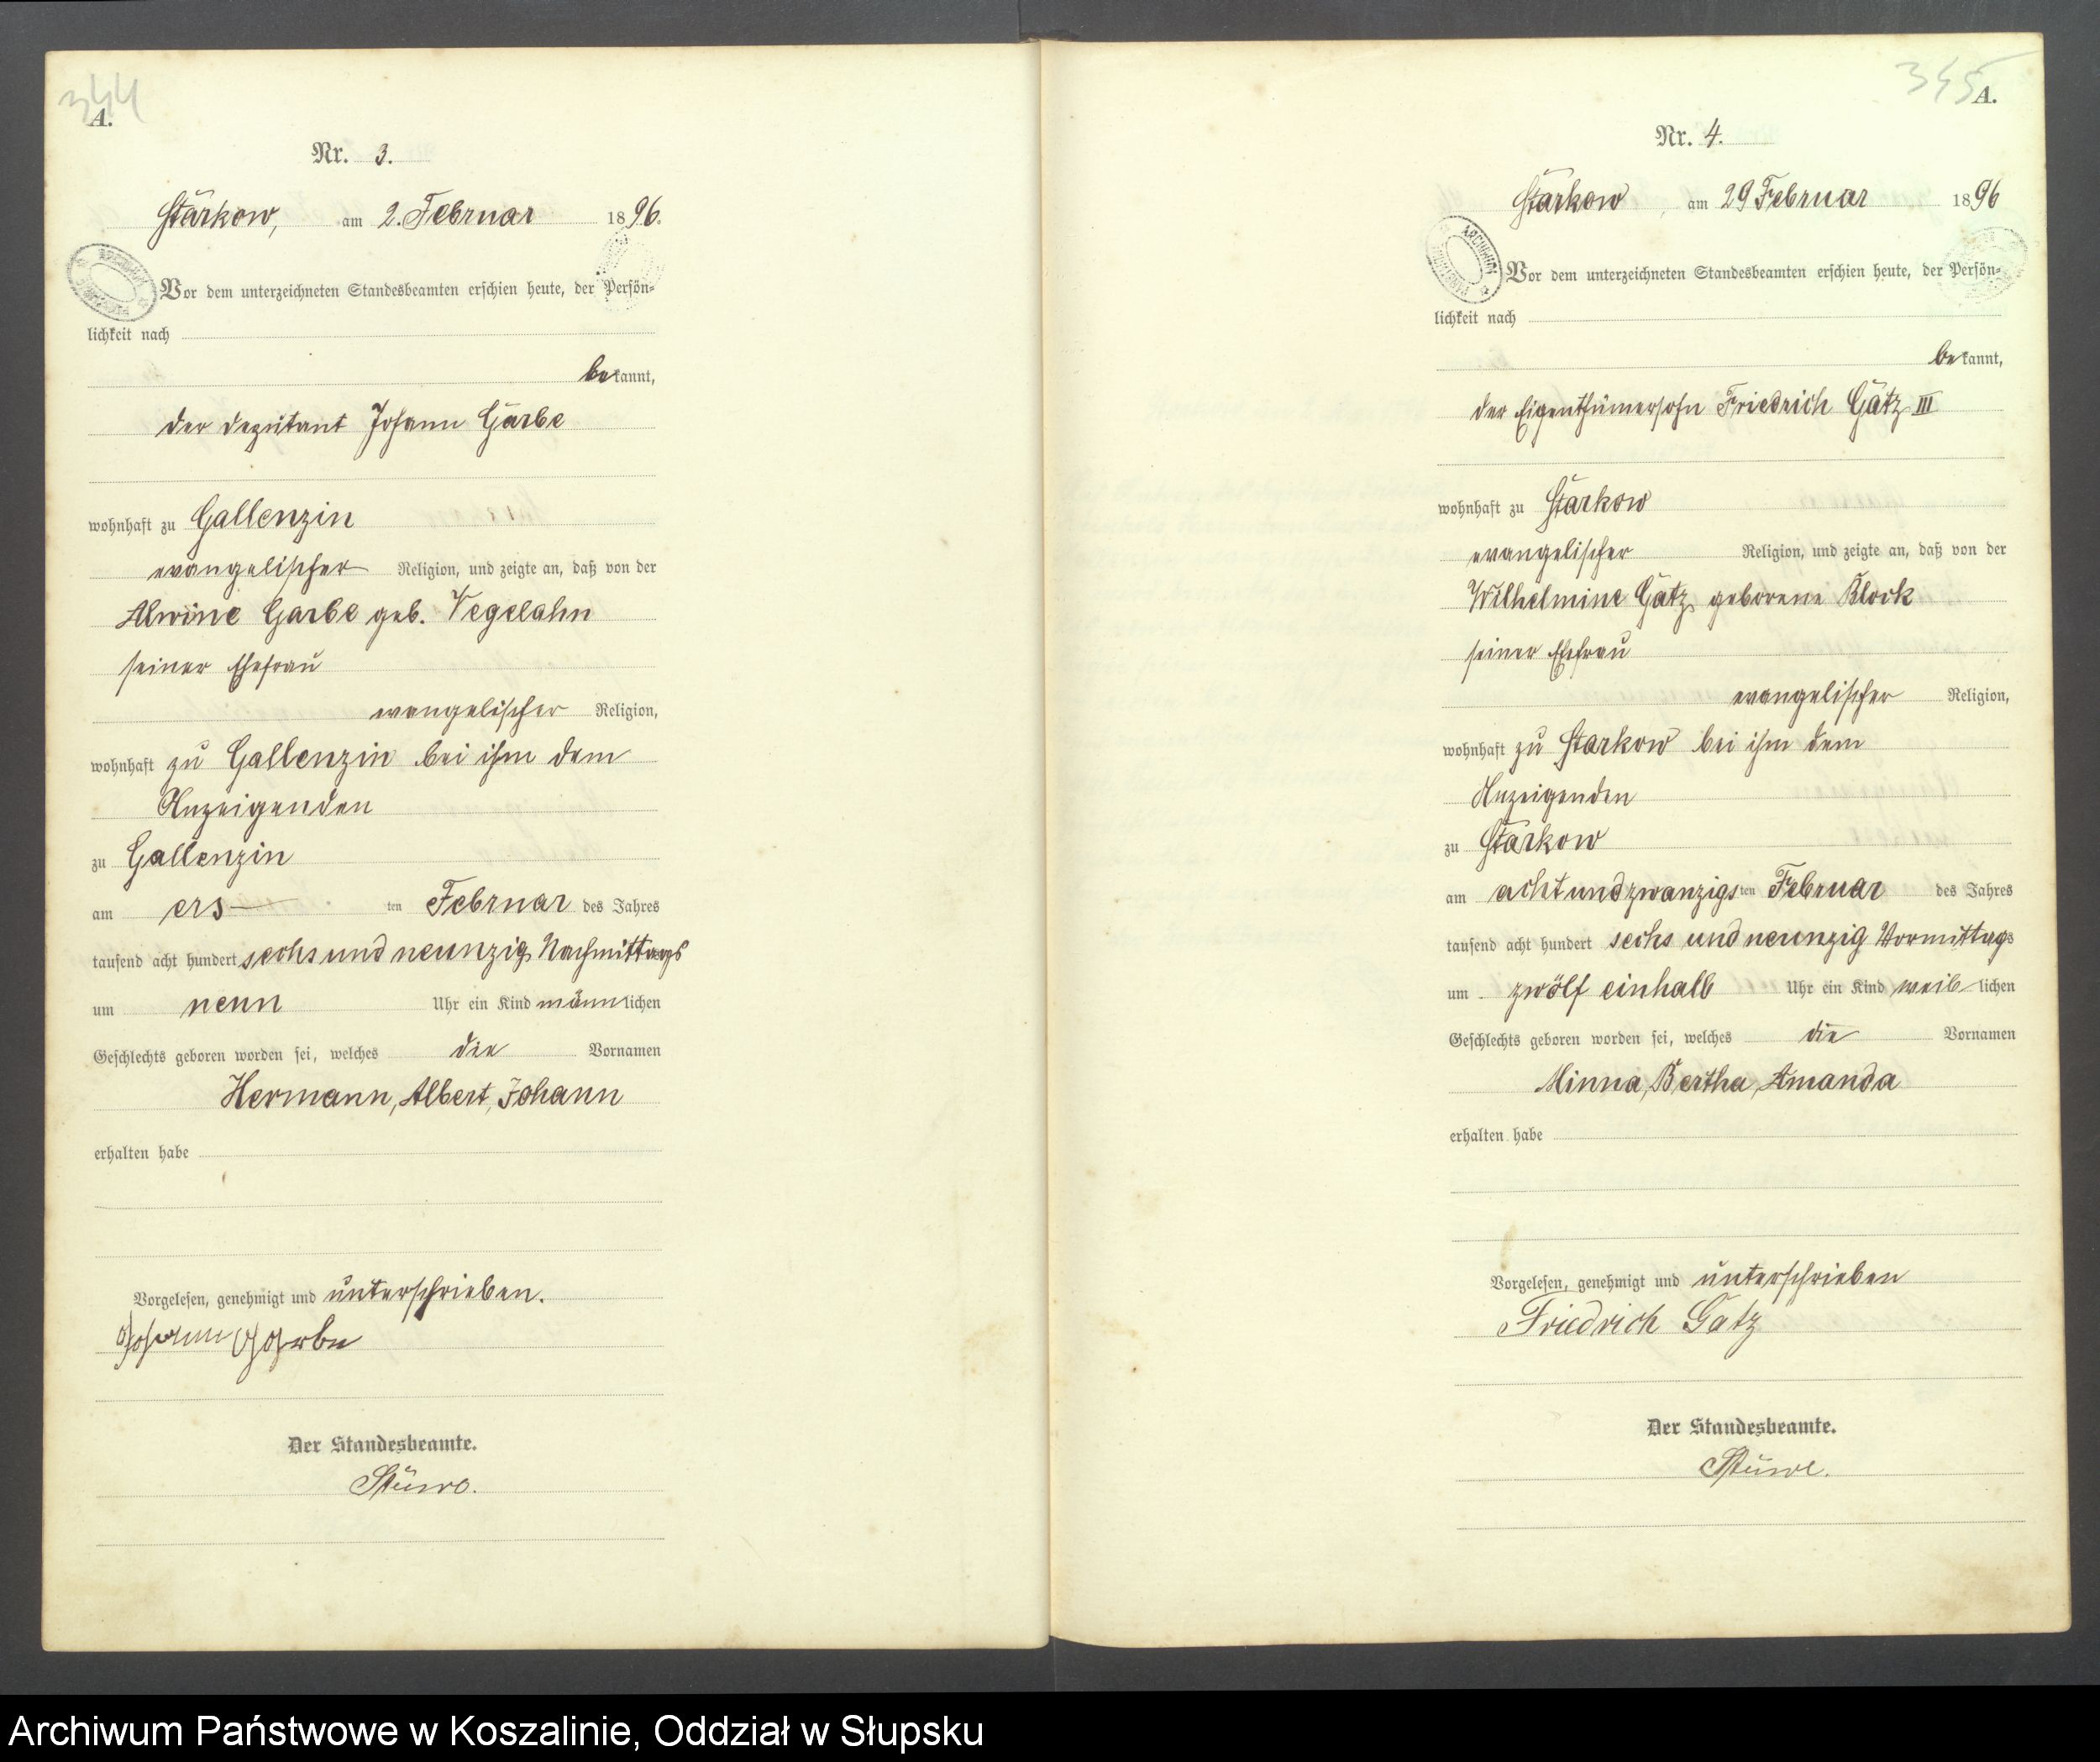 344
A.
Nr. 3.
Starkow, am 2. Februar 1896.
Vor dem unterzeichneten Standesbeamten erschien heute, der Persön-
lichkeit nach
bekannt,
der Deputant Johann Garbe
wohnhaft zu Gallenzin
evangelischer Religion, und zeigte an, daß von der
Alwine Garbe geb. Vegelahn
seiner Ehefrau
evangelischer Religion,
wohnhaft zu Gallenzin bei ihm dem
Anzeigenden
zu Gallenzin
am ers ten Februar des Jahres
tausend acht hundert sechs und neunzig Nachmittags
um neun Uhr ein Kind männlichen
Geschlechts geboren worden sei, welches die Vornamen
Hermann, Albert, Johann
erhalten habe
Vorgelesen, genehmigt und unterschrieben.
Johann Garbe
Der Standesbeamte.
Stüwe.
345
A.
Nr. 4.
Starkow, am 29 Februar 1896
Vor dem unterzeichneten Standesbeamten erschien heute, der Persön-
lichkeit nach
bekannt,
der Eigenthümersohn Friedrich Gatz III
wohnhaft zu Starkow
evangelischer Religion, und zeigte an, daß von der
Wilhelmine Gatz, geborene Klock
seiner Ehefrau
evangelischer Religion,
wohnhaft zu Starkow bei ihm dem
Anzeigenden
zu Starkow
am achtundzwanzigsten Februar des Jahres
tausend acht hundert sechs und neunzig Vormittags
um zwölf einhalb Uhr ein Kind weiblichen
Geschlechts geboren worden sei, welches die Vornamen
Minna, Bertha, Amanda
erhalten habe
Vorgelesen, genehmigt und unterschrieben
Friedrich Gatz
Der Standesbeamte.
Stüwe.
Archiwum Państwowe w Koszalinie, Oddział w Słupsku